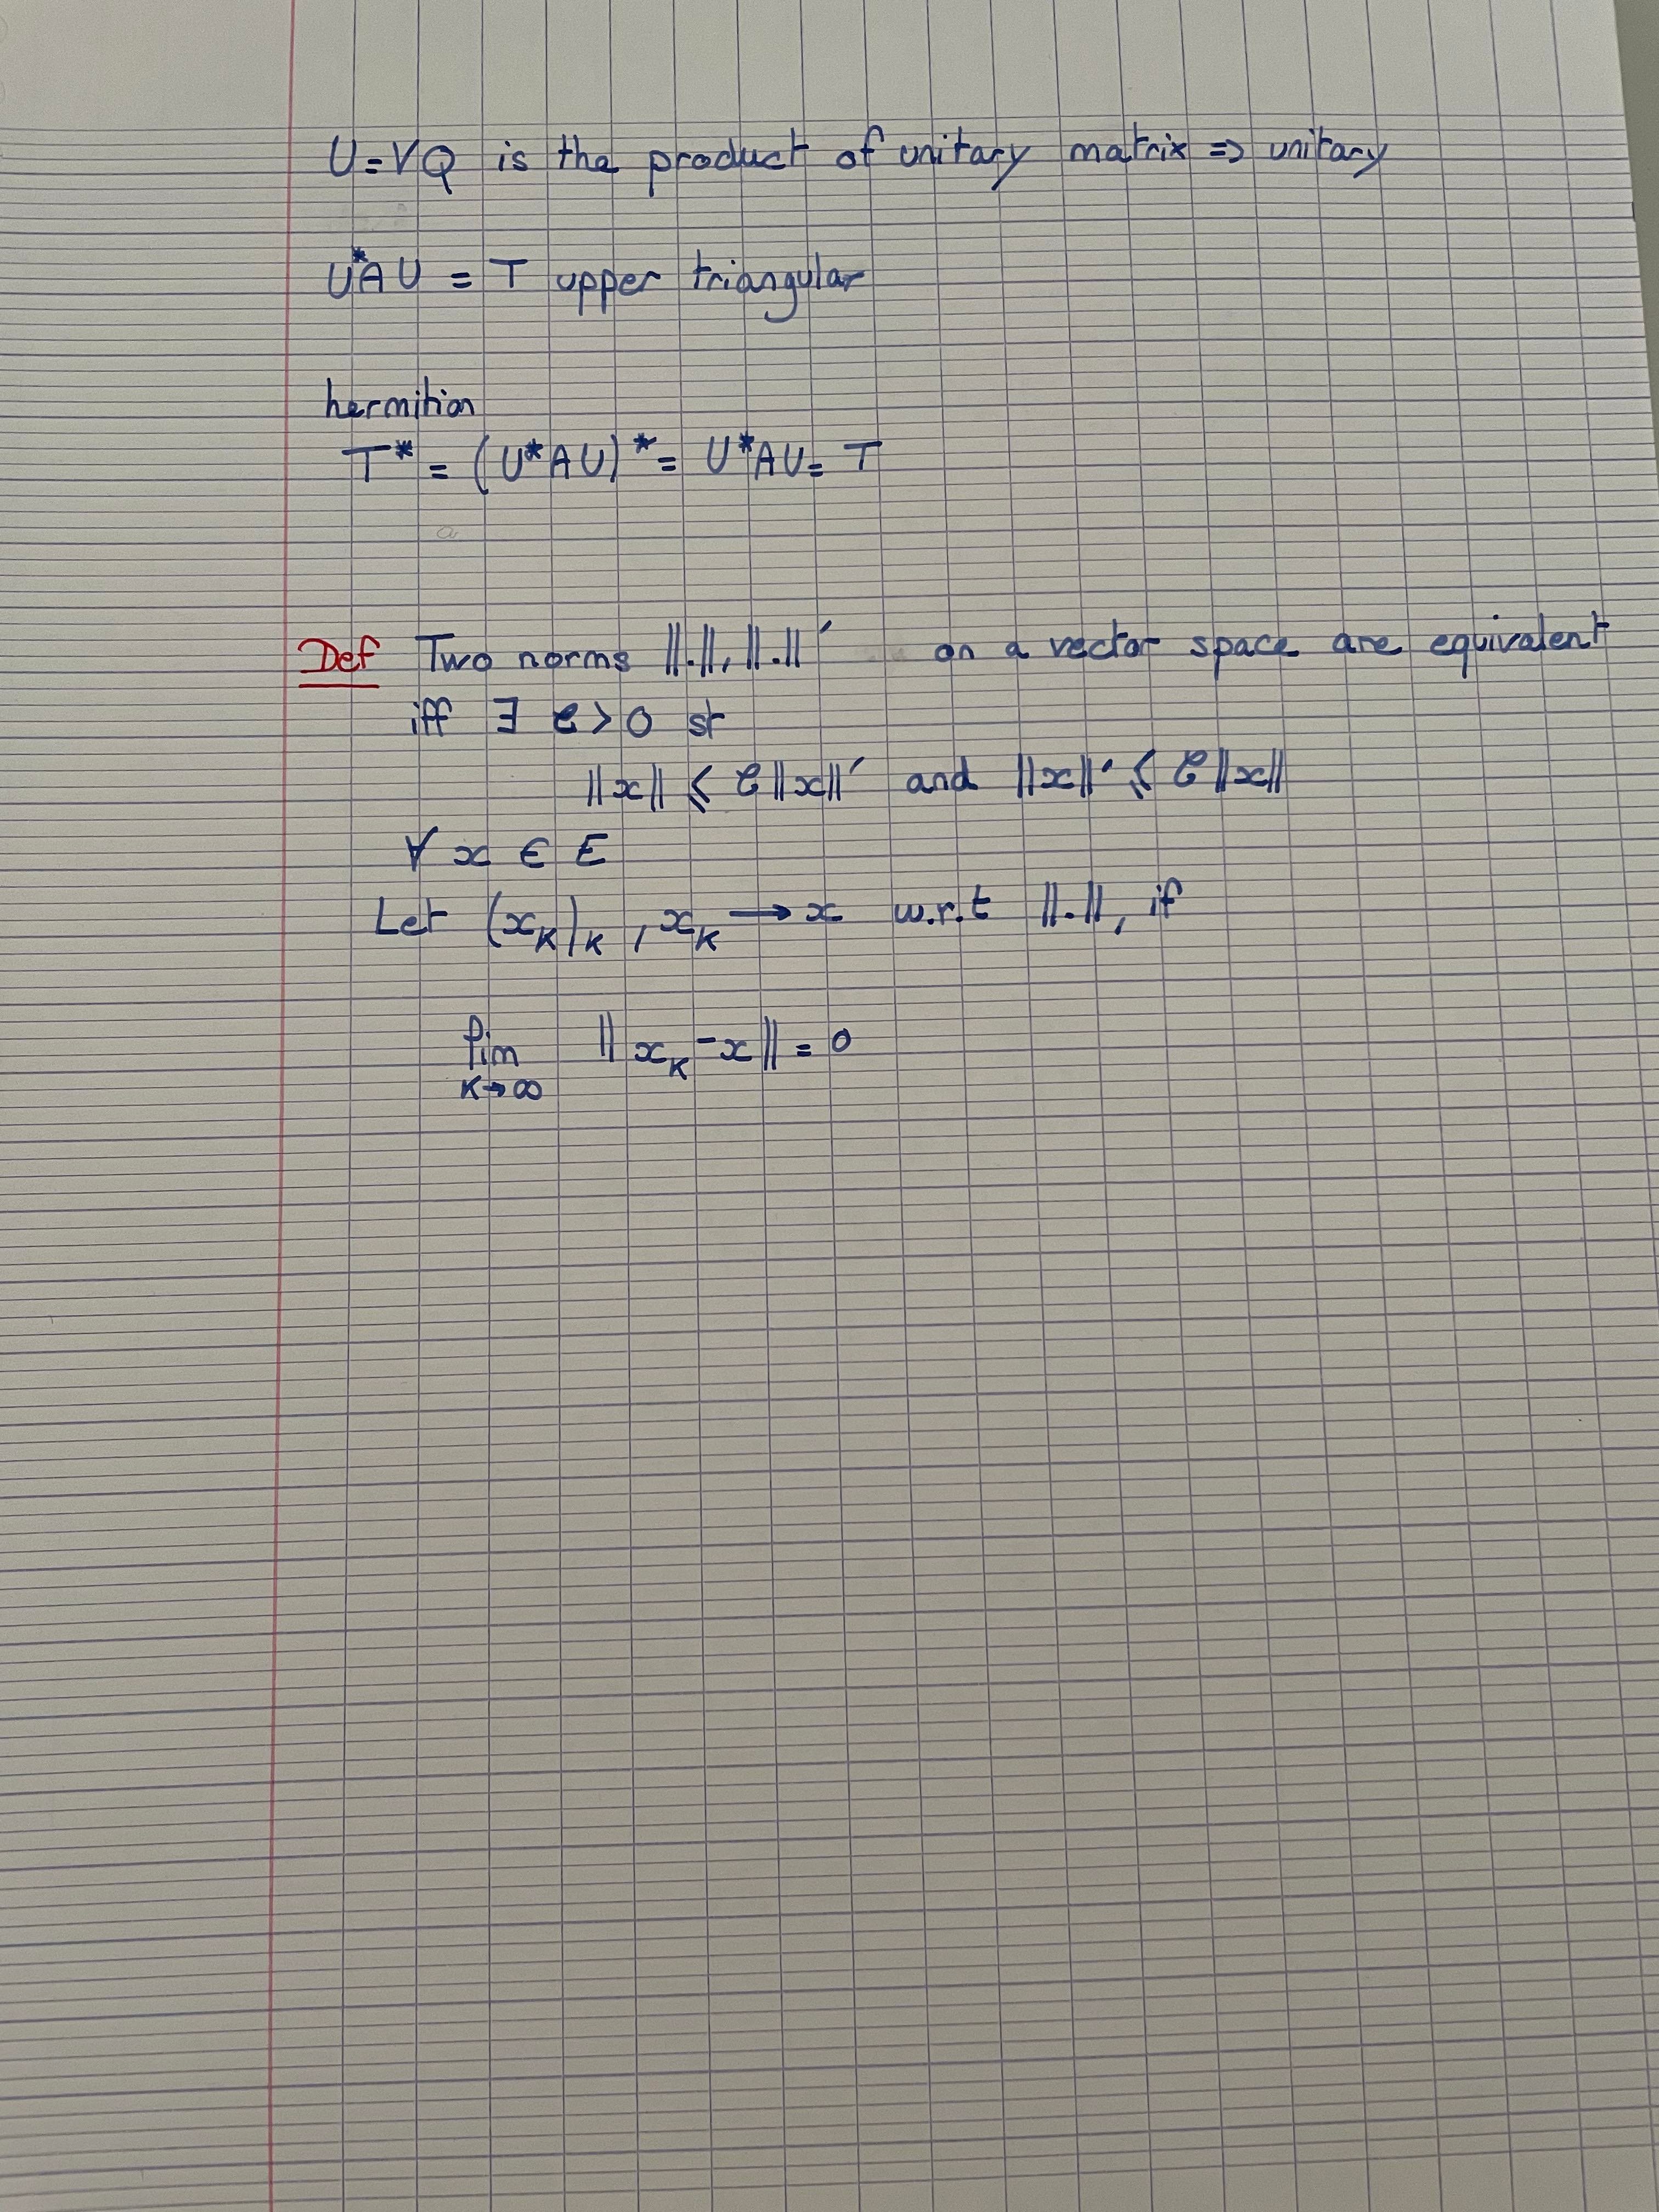 U = VQ is the product of unitary matrix => unitary
U*AU = T upper triangular
hermitian
T* = (U*AU)* = U*AU = T
Def Two norms ||.||, ||.||' on a vector space are equivalent
iff ∃ C > 0 st
||x|| ⩽ C ||x||' and ||x||' ⩽ C ||x||
∀ x ∈ E
Let (x_K)_K , x_K → x w.r.t ||.||, if
lim ||x_K - x|| = 0
K→∞